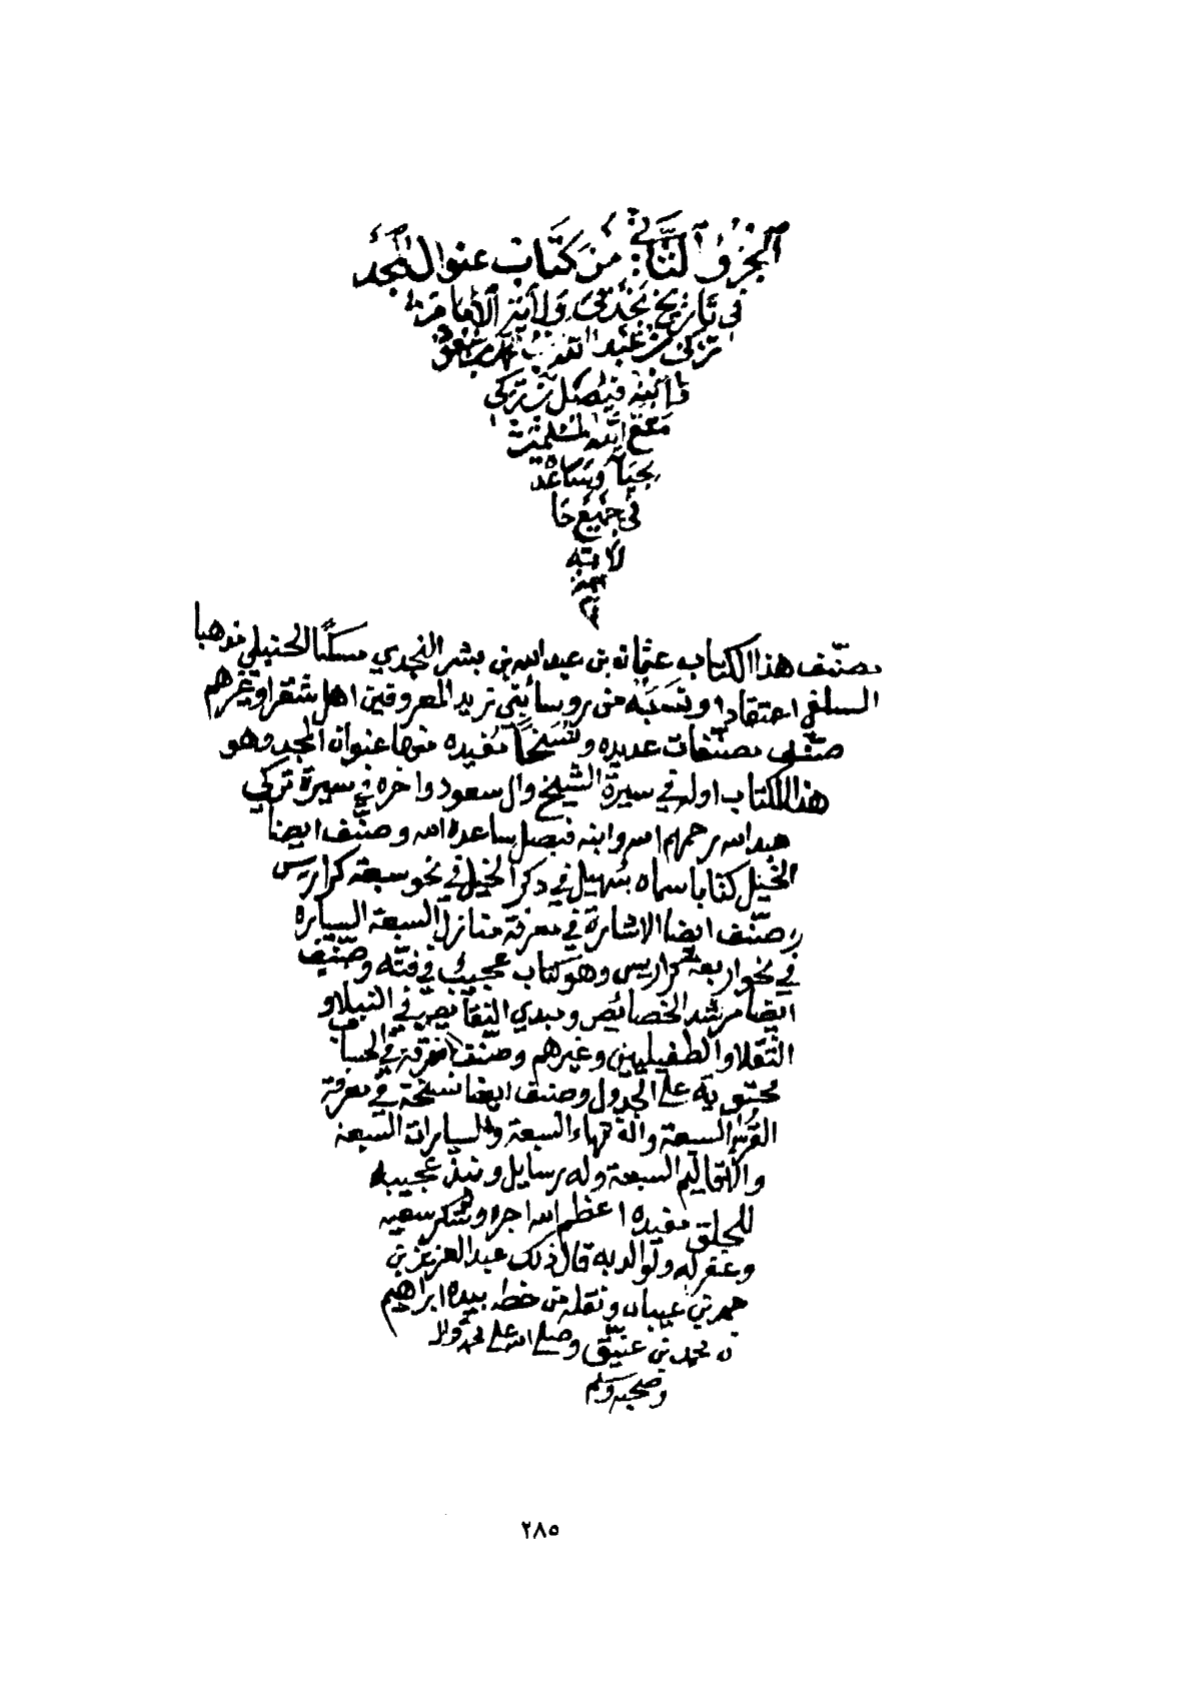 الجزؤ الثاني من كتاب عنوان المجد
في تاريخ نجد في ولاية الامام
تركي بن عبد الله بن محمد بن سعود
وابنه فيصل بن تركي
متع الله المسلمين
بحياته وساعده
في جميع حا
لاته
آمين
مصنف هذا الكتاب عثمان بن عبد الله بن بشر النجدي مسكنا الحنبلي مذهبا
السلفي اعتقادا ونسبه من روساء بني زيد المعروفين اهل شقرا وغيرهم
صنف مصنفات عديده ونسخا مفيده منها عنوان المجد وهو
هذا الكتاب اوله في سيرة الشيخ وال سعود واخره في سيرة تركي
عبد الله رحمهم الله وابنه فيصل ساعده الله وصنف ايضا
الخيل كتابا سماه سهيل في ذكر الخيل في نحو سبعة كراريس
وصنف ايضا الاشارة في معرفة منازل السبعة السياره
في نحو اربعة كراريس وهو كتاب عجيب في فنه وصنف
ايضا مرشد الخصائص ومبدي النقائص في النبلا و
الثقلا والطفيليين وغيرهم وصنف في الحساب
محتويه على الجدول وصنف ايضا نسخة في معرفة
السبعة السبعة والسيارات السبعة
والاقاليم السبعة وله رسايل ونبذ عجيبه
للخلق مفيده اعظم الله اجره وشكر سعيه
وغفر له ولوالديه قال ذلك عبد العزيز بن
حمد بن عيبان ونقله من خطه بيده ابراهيم
بن محمد بن عتيق وصلى الله على محمد واله
وصحبه وسلم
٢٨٥